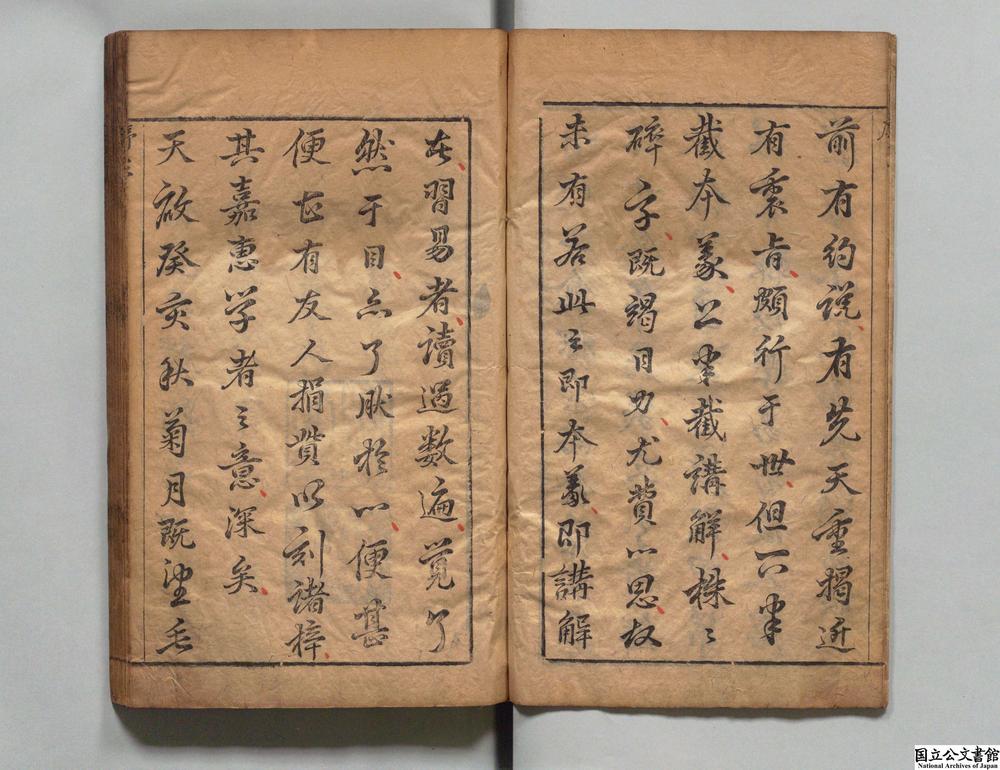 序
前有約説有先天重掲近
有衷旨頗行于世但下半
截本義上半截講解株〻
碎字既竭目力尤費心思故
未有若此之即本義即講解
在習易者讀過數遍覺了
然于目亦了肰於心便甚
便也有友人捐貲以刻諸梓
其嘉惠学者之意深矣
天啟癸亥秋菊月既望毛
国立公文書館
National Archives of Japan